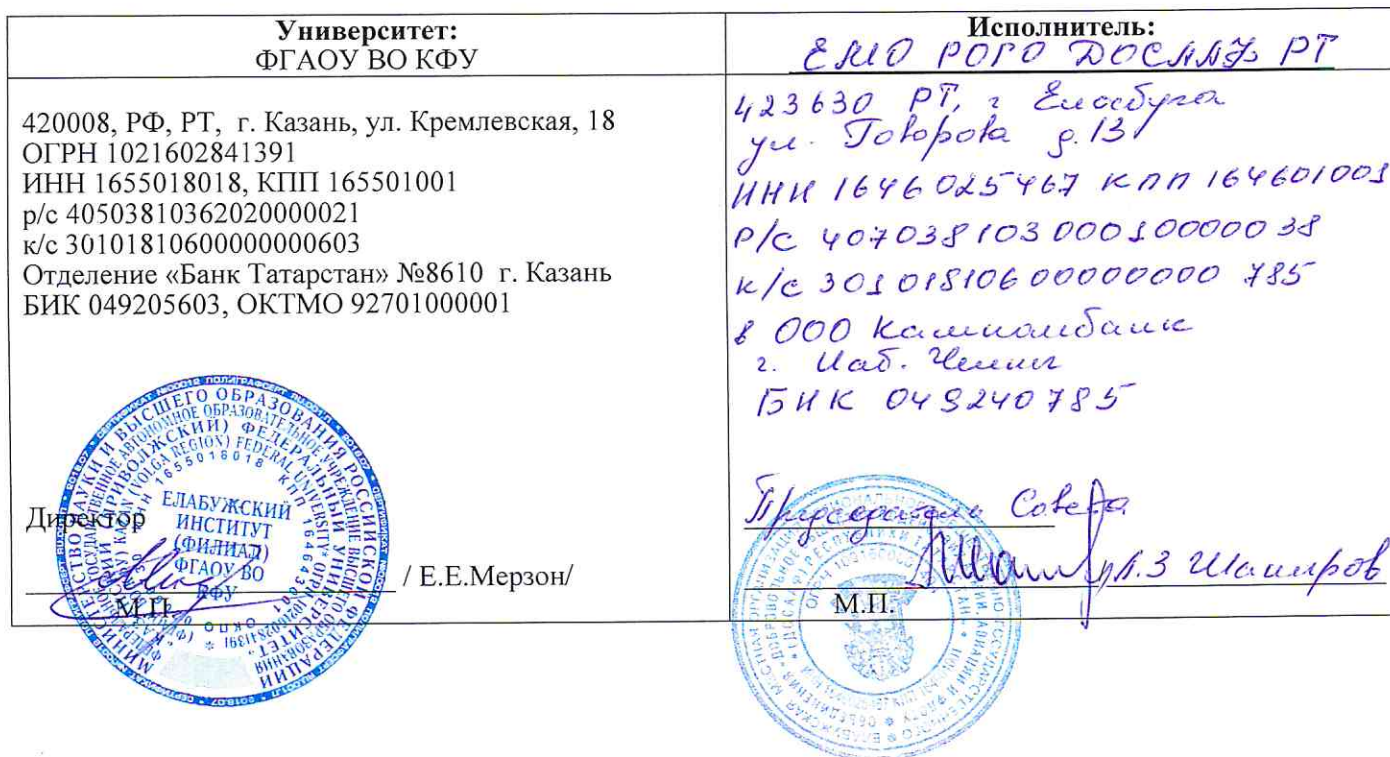 Университет:
ФГАОУ ВО КФУ
420008, РФ, РТ, г. Казань, ул. Кремлевская, 18
ОГРН 1021602841391
ИНН 1655018018, КПП 165501001
р/с 40503810362020000021
к/с 30101810600000000603
Отделение «Банк Татарстан» №8610 г. Казань
БИК 049205603, ОКТМО 92701000001
Директор
/ Е.Е.Мерзон/
М.П.
ЕЛАБУЖСКИЙ
ИНСТИТУТ
(ФИЛИАЛ)
ФГАОУ ВО
КФУ
Исполнитель:
ЕМО РОГО ДОСААФ РТ
423630 РТ, г Елабуга
ул. Говорова д.13
ИНН 1646025467 КПП 164601001
Р/С 40703810300010000038
к/с 30101810600000000785
в ООО Камкомбанк
г. Наб. Челны
БИК 049240785
Председатель Совета
Л.З Шакиров
М.П.